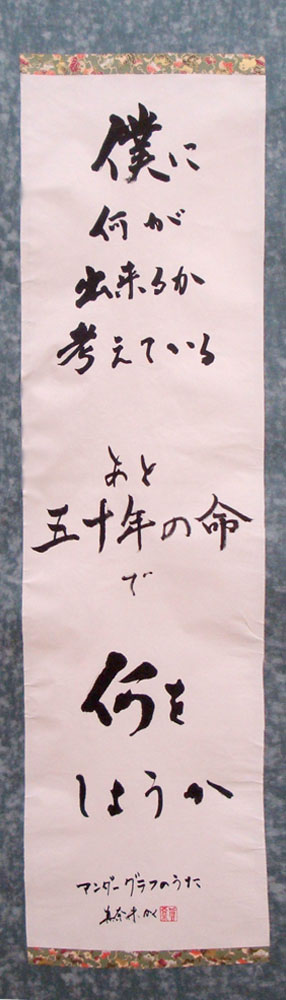 僕に
何が
出来るか
考えている
あと
五十年の命
で
何を
しようか
アンダーグラフのうた
真奈美かく